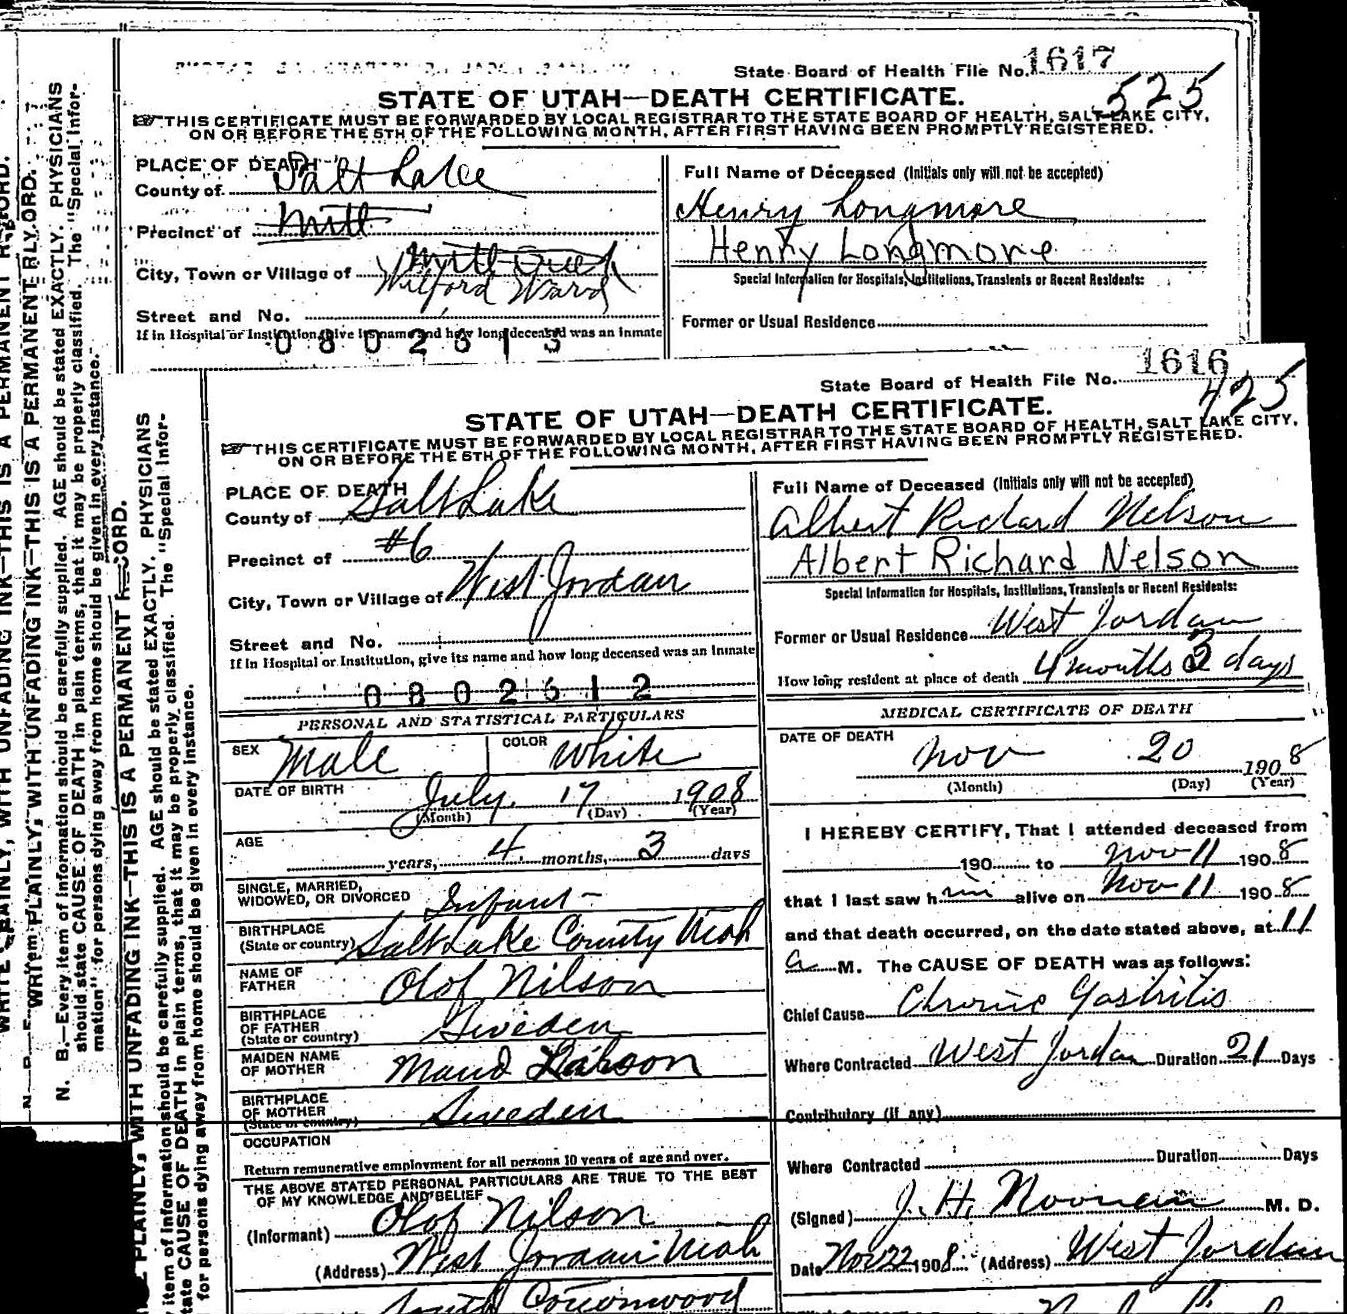 State Board of Health File No. 1617
525
STATE OF UTAH—DEATH CERTIFICATE.
THIS CERTIFICATE MUST BE FORWARDED BY LOCAL REGISTRAR TO THE STATE BOARD OF HEALTH, SALT LAKE CITY,
ON OR BEFORE THE 5TH OF THE FOLLOWING MONTH, AFTER FIRST HAVING BEEN PROMPTLY REGISTERED.
PLACE OF DEATH
County of Salt Lake
Precinct of Mill
City, Town or Village of Mill Creek
Wilford Ward
Street and No.
If in Hospital or Institution, give its name and how long deceased was an inmate
0802613
Full Name of Deceased (Initials only will not be accepted)
Henry Longmore
Henry Longmore
Special Information for Hospitals, Institutions, Transients or Recent Residents:
Former or Usual Residence
State Board of Health File No. 1616
425
STATE OF UTAH—DEATH CERTIFICATE.
THIS CERTIFICATE MUST BE FORWARDED BY LOCAL REGISTRAR TO THE STATE BOARD OF HEALTH, SALT LAKE CITY,
ON OR BEFORE THE 5TH OF THE FOLLOWING MONTH, AFTER FIRST HAVING BEEN PROMPTLY REGISTERED.
PLACE OF DEATH
County of Salt Lake
Precinct of #6
City, Town or Village of West Jordan
Street and No.
If in Hospital or Institution, give its name and how long deceased was an inmate
0802612
Full Name of Deceased (Initials only will not be accepted)
Albert Richard Nelson
Albert Richard Nelson
Special Information for Hospitals, Institutions, Transients or Recent Residents:
Former or Usual Residence West Jordan
How long resident at place of death 4 months 3 days
PERSONAL AND STATISTICAL PARTICULARS
SEX Male COLOR White
DATE OF BIRTH July 17 1908
(Month) (Day) (Year)
AGE
years, 4 months, 3 days
SINGLE, MARRIED,
WIDOWED, OR DIVORCED Infant
BIRTHPLACE
(State or country) Salt Lake County Utah
NAME OF
FATHER Olof Nilson
BIRTHPLACE
OF FATHER
(State or country) Sweden
MAIDEN NAME
OF MOTHER Maud
BIRTHPLACE
OF MOTHER
(State or country) Sweden
OCCUPATION
Return remunerative employment for all persons 10 years of age and over.
THE ABOVE STATED PERSONAL PARTICULARS ARE TRUE TO THE BEST
OF MY KNOWLEDGE AND BELIEF
(Informant) Olof Nilson
(Address) West Jordan Utah
South Cottonwood
MEDICAL CERTIFICATE OF DEATH
DATE OF DEATH
Nov 20 1908
(Month) (Day) (Year)
I HEREBY CERTIFY, That I attended deceased from
190 to Nov 11 1908
that I last saw him alive on Nov 11 1908
and that death occurred, on the date stated above, at 11
a M. The CAUSE OF DEATH was as follows:
Chief Cause Chronic Gastritis
Where Contracted West Jordan Duration 21 Days
Contributory (if any)
Where Contracted Duration Days
(Signed) J. H. M. D.
Date Nov 22 1908 (Address) West Jordan
WRITE PLAINLY, WITH UNFADING INK—THIS IS A PERMANENT RECORD.
WRITE PLAINLY, WITH UNFADING INK—THIS IS A PERMANENT RECORD.
N. B.—Every item of information should be carefully supplied. AGE should be stated EXACTLY. PHYSICIANS
should state CAUSE OF DEATH in plain terms, that it may be properly classified. The "Special Infor-
mation" for persons dying away from home should be given in every instance.
PLAINLY, WITH UNFADING INK—THIS IS A PERMANENT RECORD.
item of information should be carefully supplied. AGE should be stated EXACTLY. PHYSICIANS
tate CAUSE OF DEATH in plain terms, that it may be properly classified. The "Special Infor-
for persons dying away from home should be given in every instance.